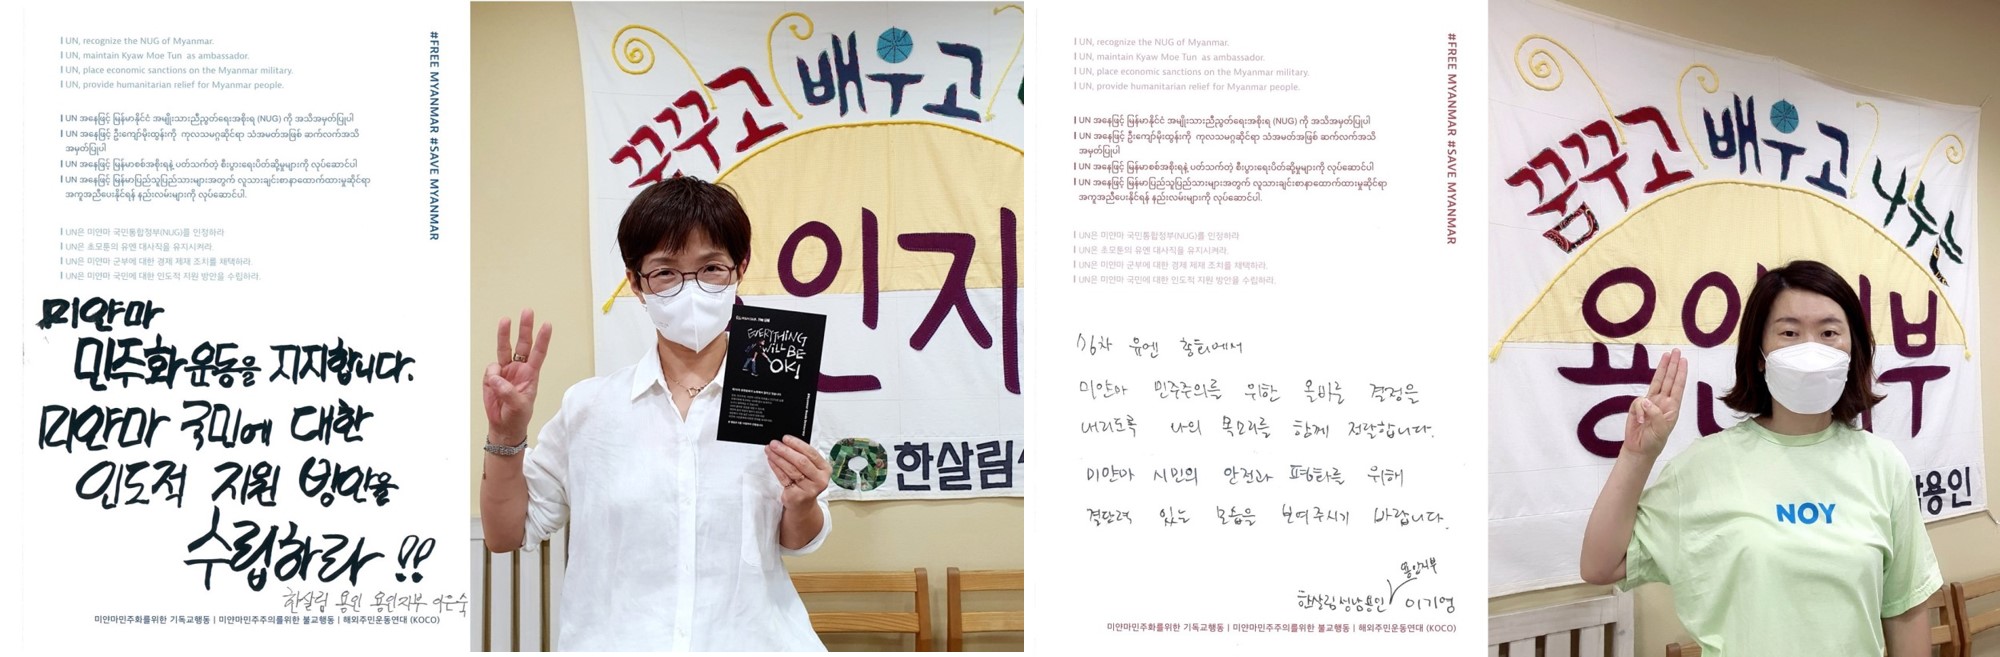 UN, recognize the NUG of Myanmar.
UN, maintain Kyaw Moe Tun as ambassador.
UN, place economic sanctions on the Myanmar military.
UN, provide humanitarian relief for Myanmar people.
UN အနေဖြင့် မြန်မာနိုင်ငံ အမျိုးသားညီညွတ်ရေးအစိုးရ (NUG) ကို အသိအမှတ်ပြုပါ
UN အနေဖြင့် ဦးကျော်မိုးထွန်းကို ကုလသမဂ္ဂဆိုင်ရာ သံအမတ်အဖြစ် ဆက်လက်အသိ
အမှတ်ပြုပါ
UN အနေဖြင့် မြန်မာစစ်အစိုးရနဲ့ ပတ်သက်တဲ့ စီးပွားရေးပိတ်ဆို့မှုများကို လုပ်ဆောင်ပါ
UN အနေဖြင့် မြန်မာပြည်သူပြည်သားများအတွက် လူသားချင်းစာနာထောက်ထားမှုဆိုင်ရာ
အကူအညီပေးနိုင်ရန် နည်းလမ်းများကို လုပ်ဆောင်ပါ.
UN은 미얀마 국민통합정부(NUG)를 인정하라
UN은 초모툰의 유엔 대사직을 유지시켜라.
UN은 미얀마 군부에 대한 경제 제재 조치를 채택하라.
UN은 미얀마 국민에 대한 인도적 지원 방안을 수립하라.
#FREE MYANMAR #SAVE MYANMAR
미얀마
민주화 운동을 지지합니다.
미얀마 국민에 대한
인도적 지원 방안을
수립하라 !!
한살림 용인 용인지부 이은숙
미얀마민주화를위한 기독교행동 | 미얀마민주주의를위한 불교행동 | 해외주민운동연대 (KOCO)
꿈꾸고 배우고
인지
한살림
EVERYTHING
WILL BE
OK!
UN, recognize the NUG of Myanmar.
UN, maintain Kyaw Moe Tun as ambassador.
UN, place economic sanctions on the Myanmar military.
UN, provide humanitarian relief for Myanmar people.
UN အနေဖြင့် မြန်မာနိုင်ငံ အမျိုးသားညီညွတ်ရေးအစိုးရ (NUG) ကို အသိအမှတ်ပြုပါ
UN အနေဖြင့် ဦးကျော်မိုးထွန်းကို ကုလသမဂ္ဂဆိုင်ရာ သံအမတ်အဖြစ် ဆက်လက်အသိ
အမှတ်ပြုပါ
UN အနေဖြင့် မြန်မာစစ်အစိုးရနဲ့ ပတ်သက်တဲ့ စီးပွားရေးပိတ်ဆို့မှုများကို လုပ်ဆောင်ပါ
UN အနေဖြင့် မြန်မာပြည်သူပြည်သားများအတွက် လူသားချင်းစာနာထောက်ထားမှုဆိုင်ရာ
အကူအညီပေးနိုင်ရန် နည်းလမ်းများကို လုပ်ဆောင်ပါ.
UN은 미얀마 국민통합정부(NUG)를 인정하라
UN은 초모툰의 유엔 대사직을 유지시켜라.
UN은 미얀마 군부에 대한 경제 제재 조치를 채택하라.
UN은 미얀마 국민에 대한 인도적 지원 방안을 수립하라.
#FREE MYANMAR #SAVE MYANMAR
유엔 총회에서
미얀마 민주주의를 위한 올바른 결정을
내리도록 나의 목소리를 함께 전달합니다.
미얀마 시민의 안전과 평화를 위해
결단력 있는 모습을 보여주시기 바랍니다.
용인지부
한살림성남용인 이기영
미얀마민주화를위한 기독교행동 | 미얀마민주주의를위한 불교행동 | 해외주민운동연대 (KOCO)
꿈꾸고 배우고 나누는
용인 부
용인
NOY